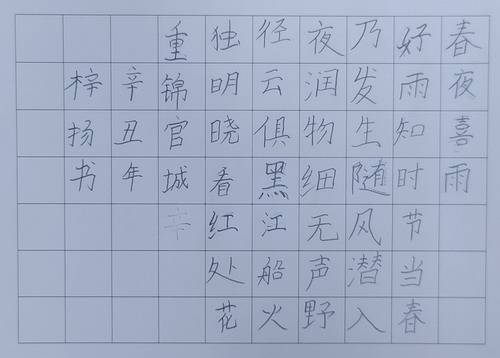 春夜喜雨
好雨知时节当春
乃发生随风潜入
夜润物细无声野
径云俱黑江船火
独明晓看红处花
重锦官城辛
辛丑年
梓扬书